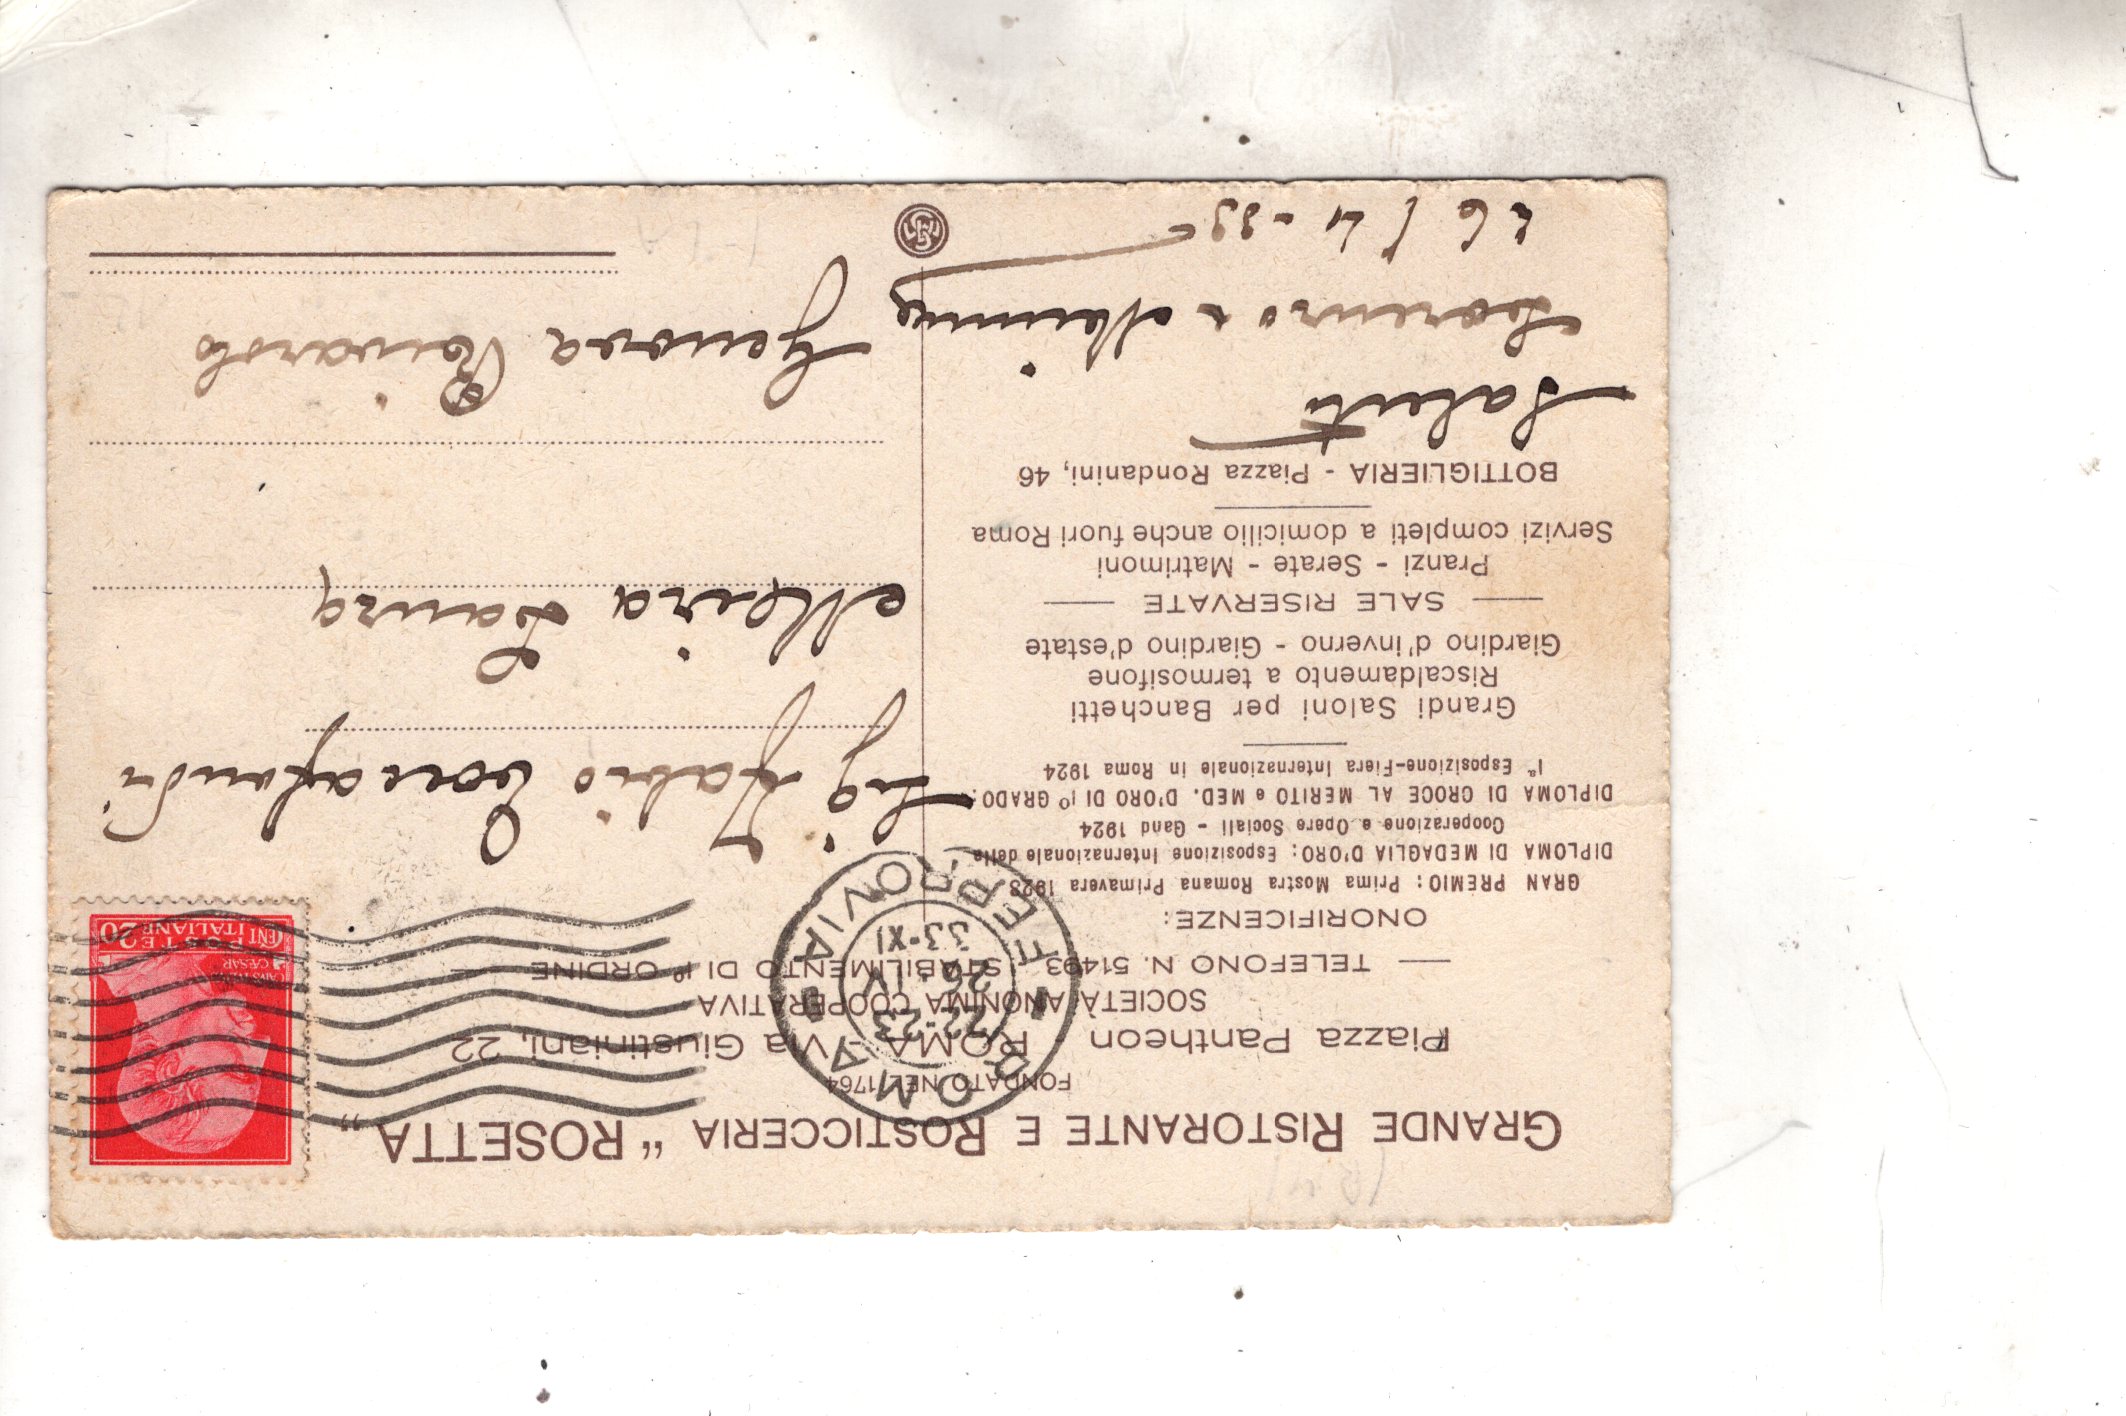 GRANDE RISTORANTE E ROSTICCERIA “ ROSETTA ”
FONDATO NEL 1764
Piazza Pantheon ROMA Via Giustiniani, 22
SOCIETÀ ANONIMA COOPERATIVA
— TELEFONO N. 51493 STABILIMENTO DI 1º ORDINE —
ONORIFICENZE:
GRAN PREMIO: Prima Mostra Romana Primavera 1923
DIPLOMA DI MEDAGLIA D'ORO: Esposizione Internazionale della
Cooperazione e Opere Sociali - Gand 1924
DIPLOMA DI CROCE AL MERITO e MED. D'ORO DI 1º GRADO:
1ª Esposizione-Fiera Internazionale in Roma 1924
Grandi Saloni per Banchetti
Riscaldamento a termosifone
Giardino d'inverno - Giardino d'estate
— SALE RISERVATE —
Pranzi - Serate - Matrimoni
Servizi completi a domicilio anche fuori Roma
BOTTIGLIERIA - Piazza Rondanini, 46
Saluti
Lorenzo
26/4-33
ROMA FERROVIA
22-23
26·IV
33·XI
POSTE
ITALIANE
CENT 20
CAESAR
Sig Fabio
Laura
Genova Rivarolo